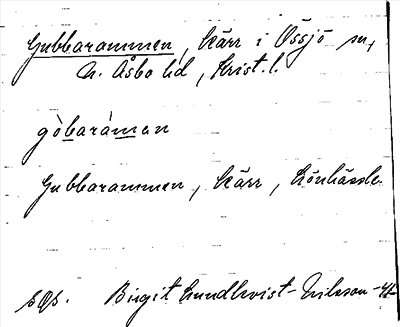 Gubbarammen, Kärr i Össjö sn,
N. Åsbo hd, Krist. l.
gòbaràmen
Gubbarammen, Kärr, Lönhässle
Birgit Lundkvist-Nilsson -41